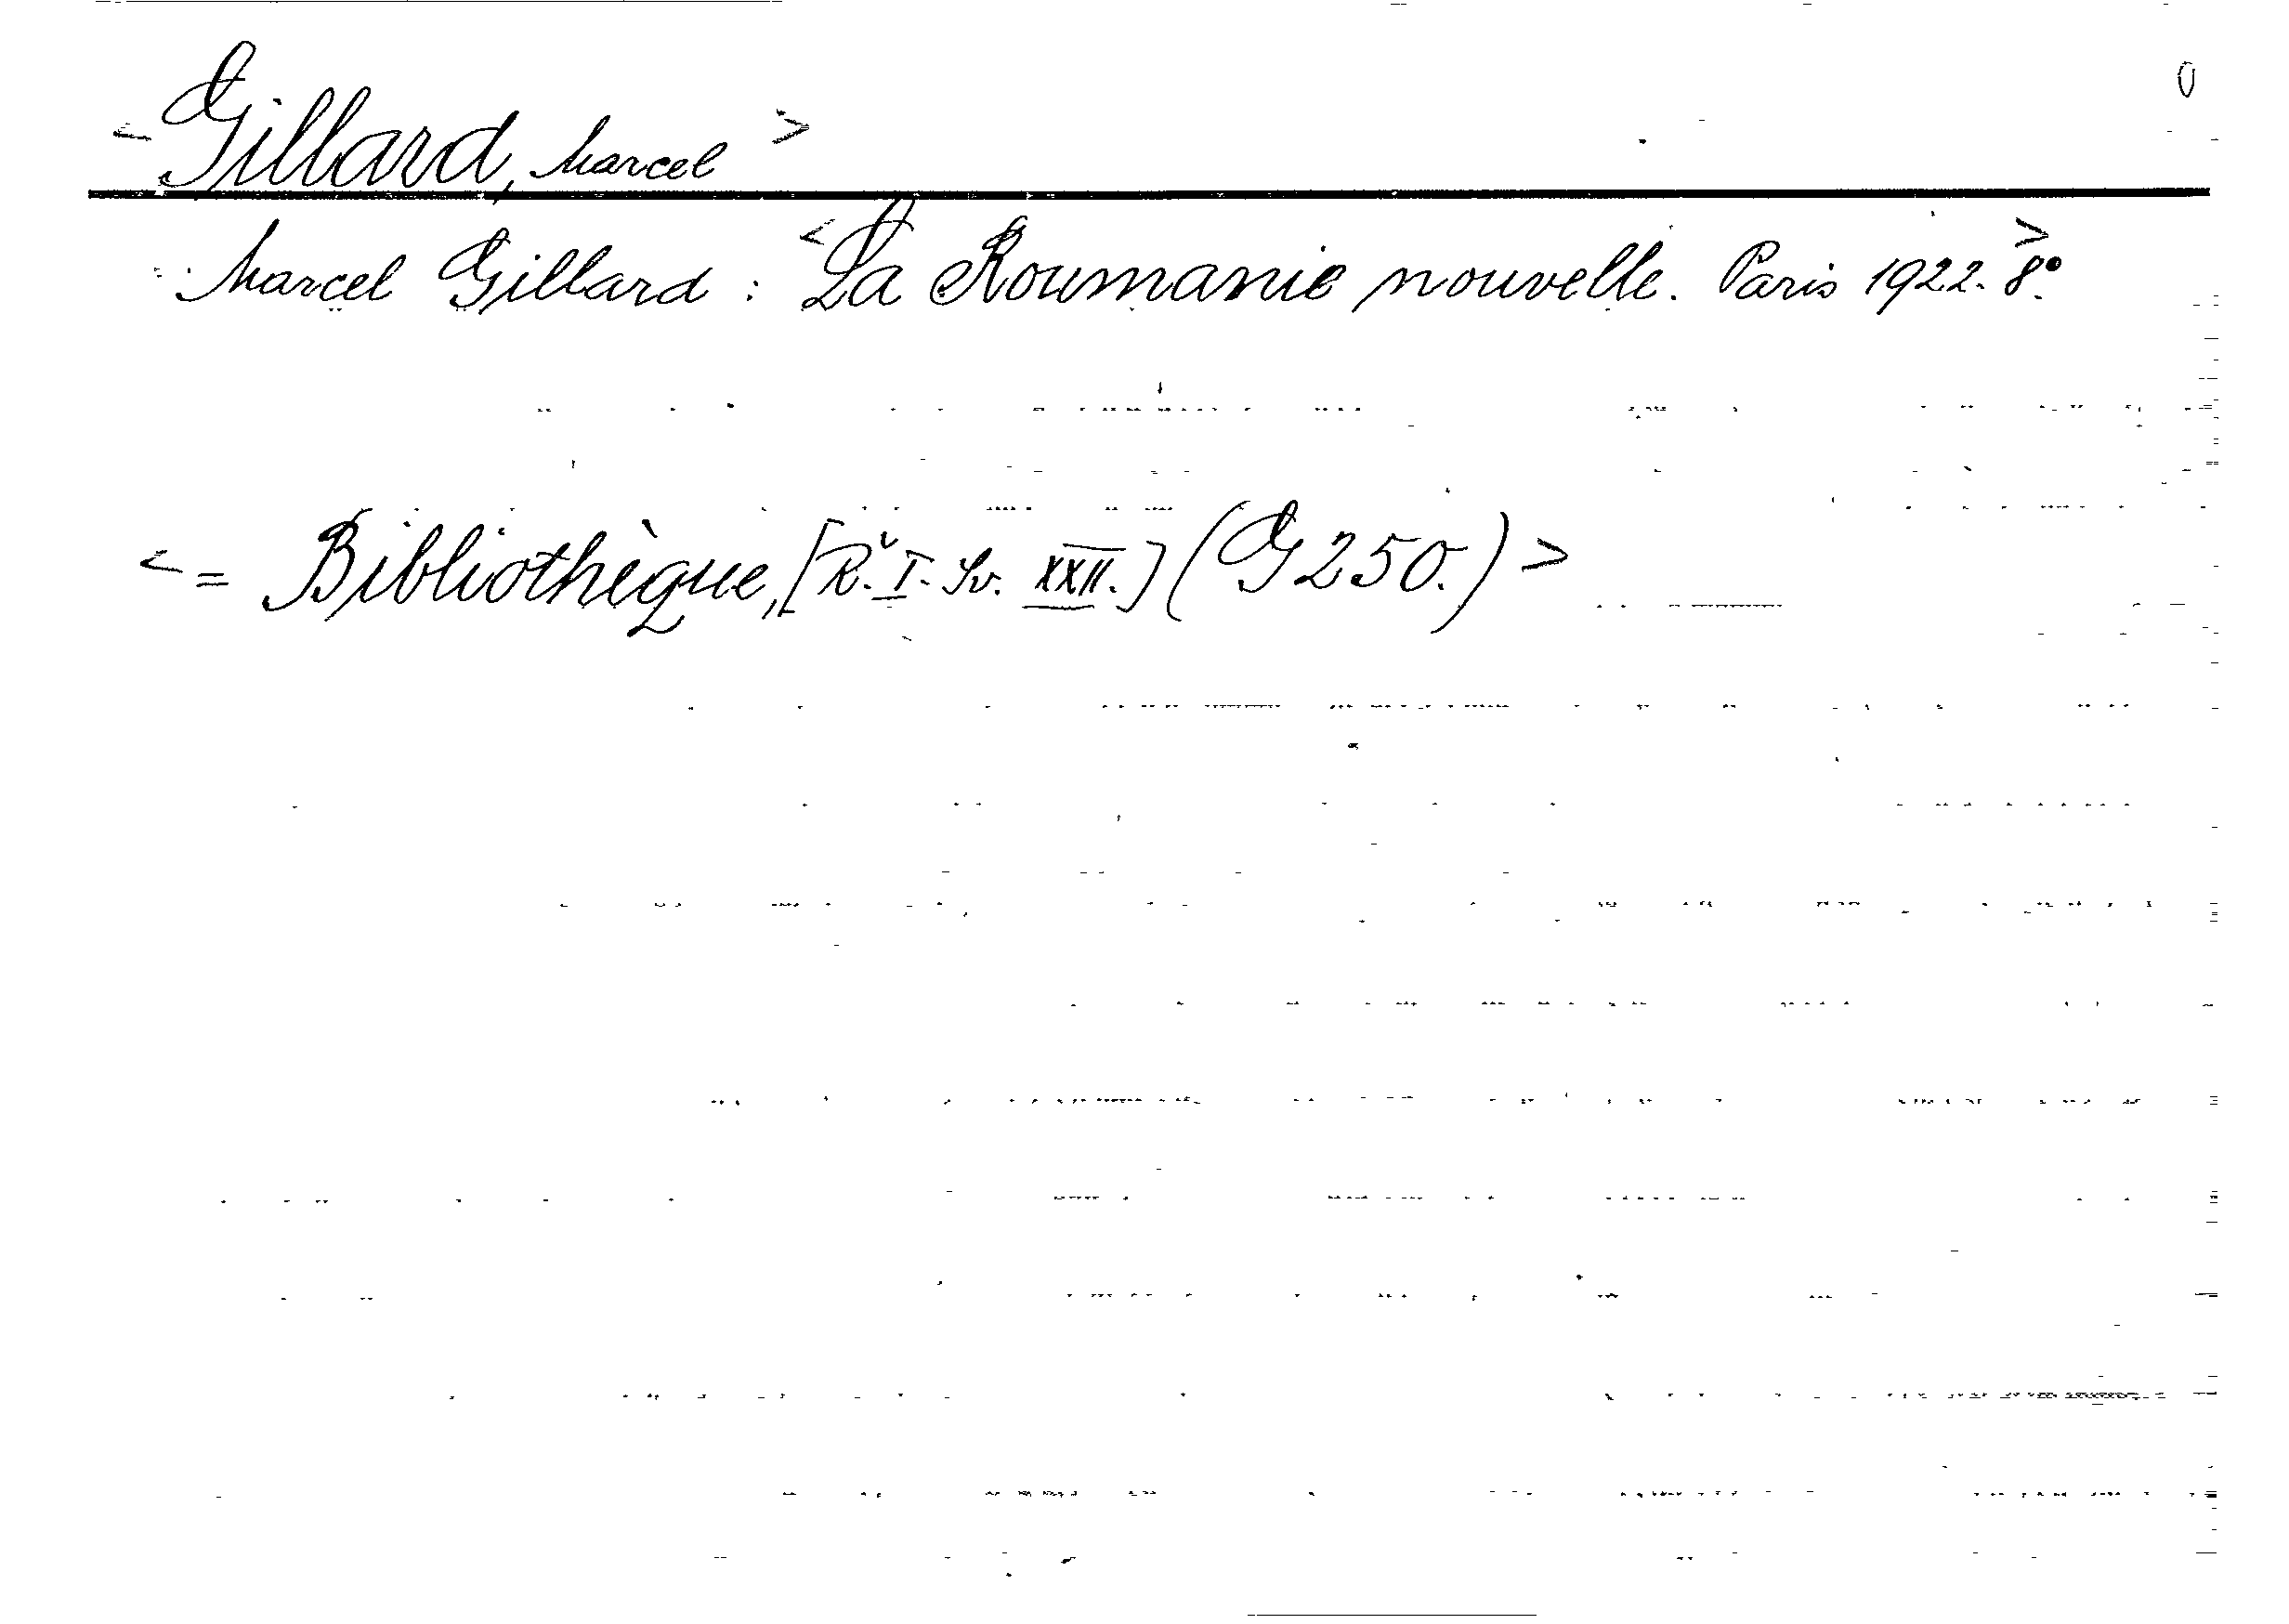 <Gillard, Marcel>
Marcel Gillard : <La Roumanie nouvelle. Paris 1922. 8º.>
<= Bibliothèque, [Ř. I. Sv. XXII.] (G 250.)>